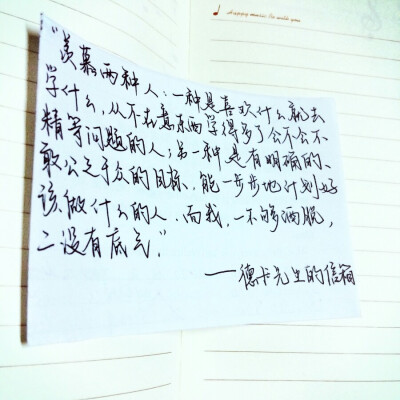 Happy music be with you
“羡慕两种人：一种是喜欢什么就去
学什么，从不在意东西学得多了会不会不
精等问题的人；另一种是有明确的、
敢公之于众的目标，能一步步地计划好
该做什么的人。而我，一不够洒脱，
二没有底气。”
——德卡先生的信箱